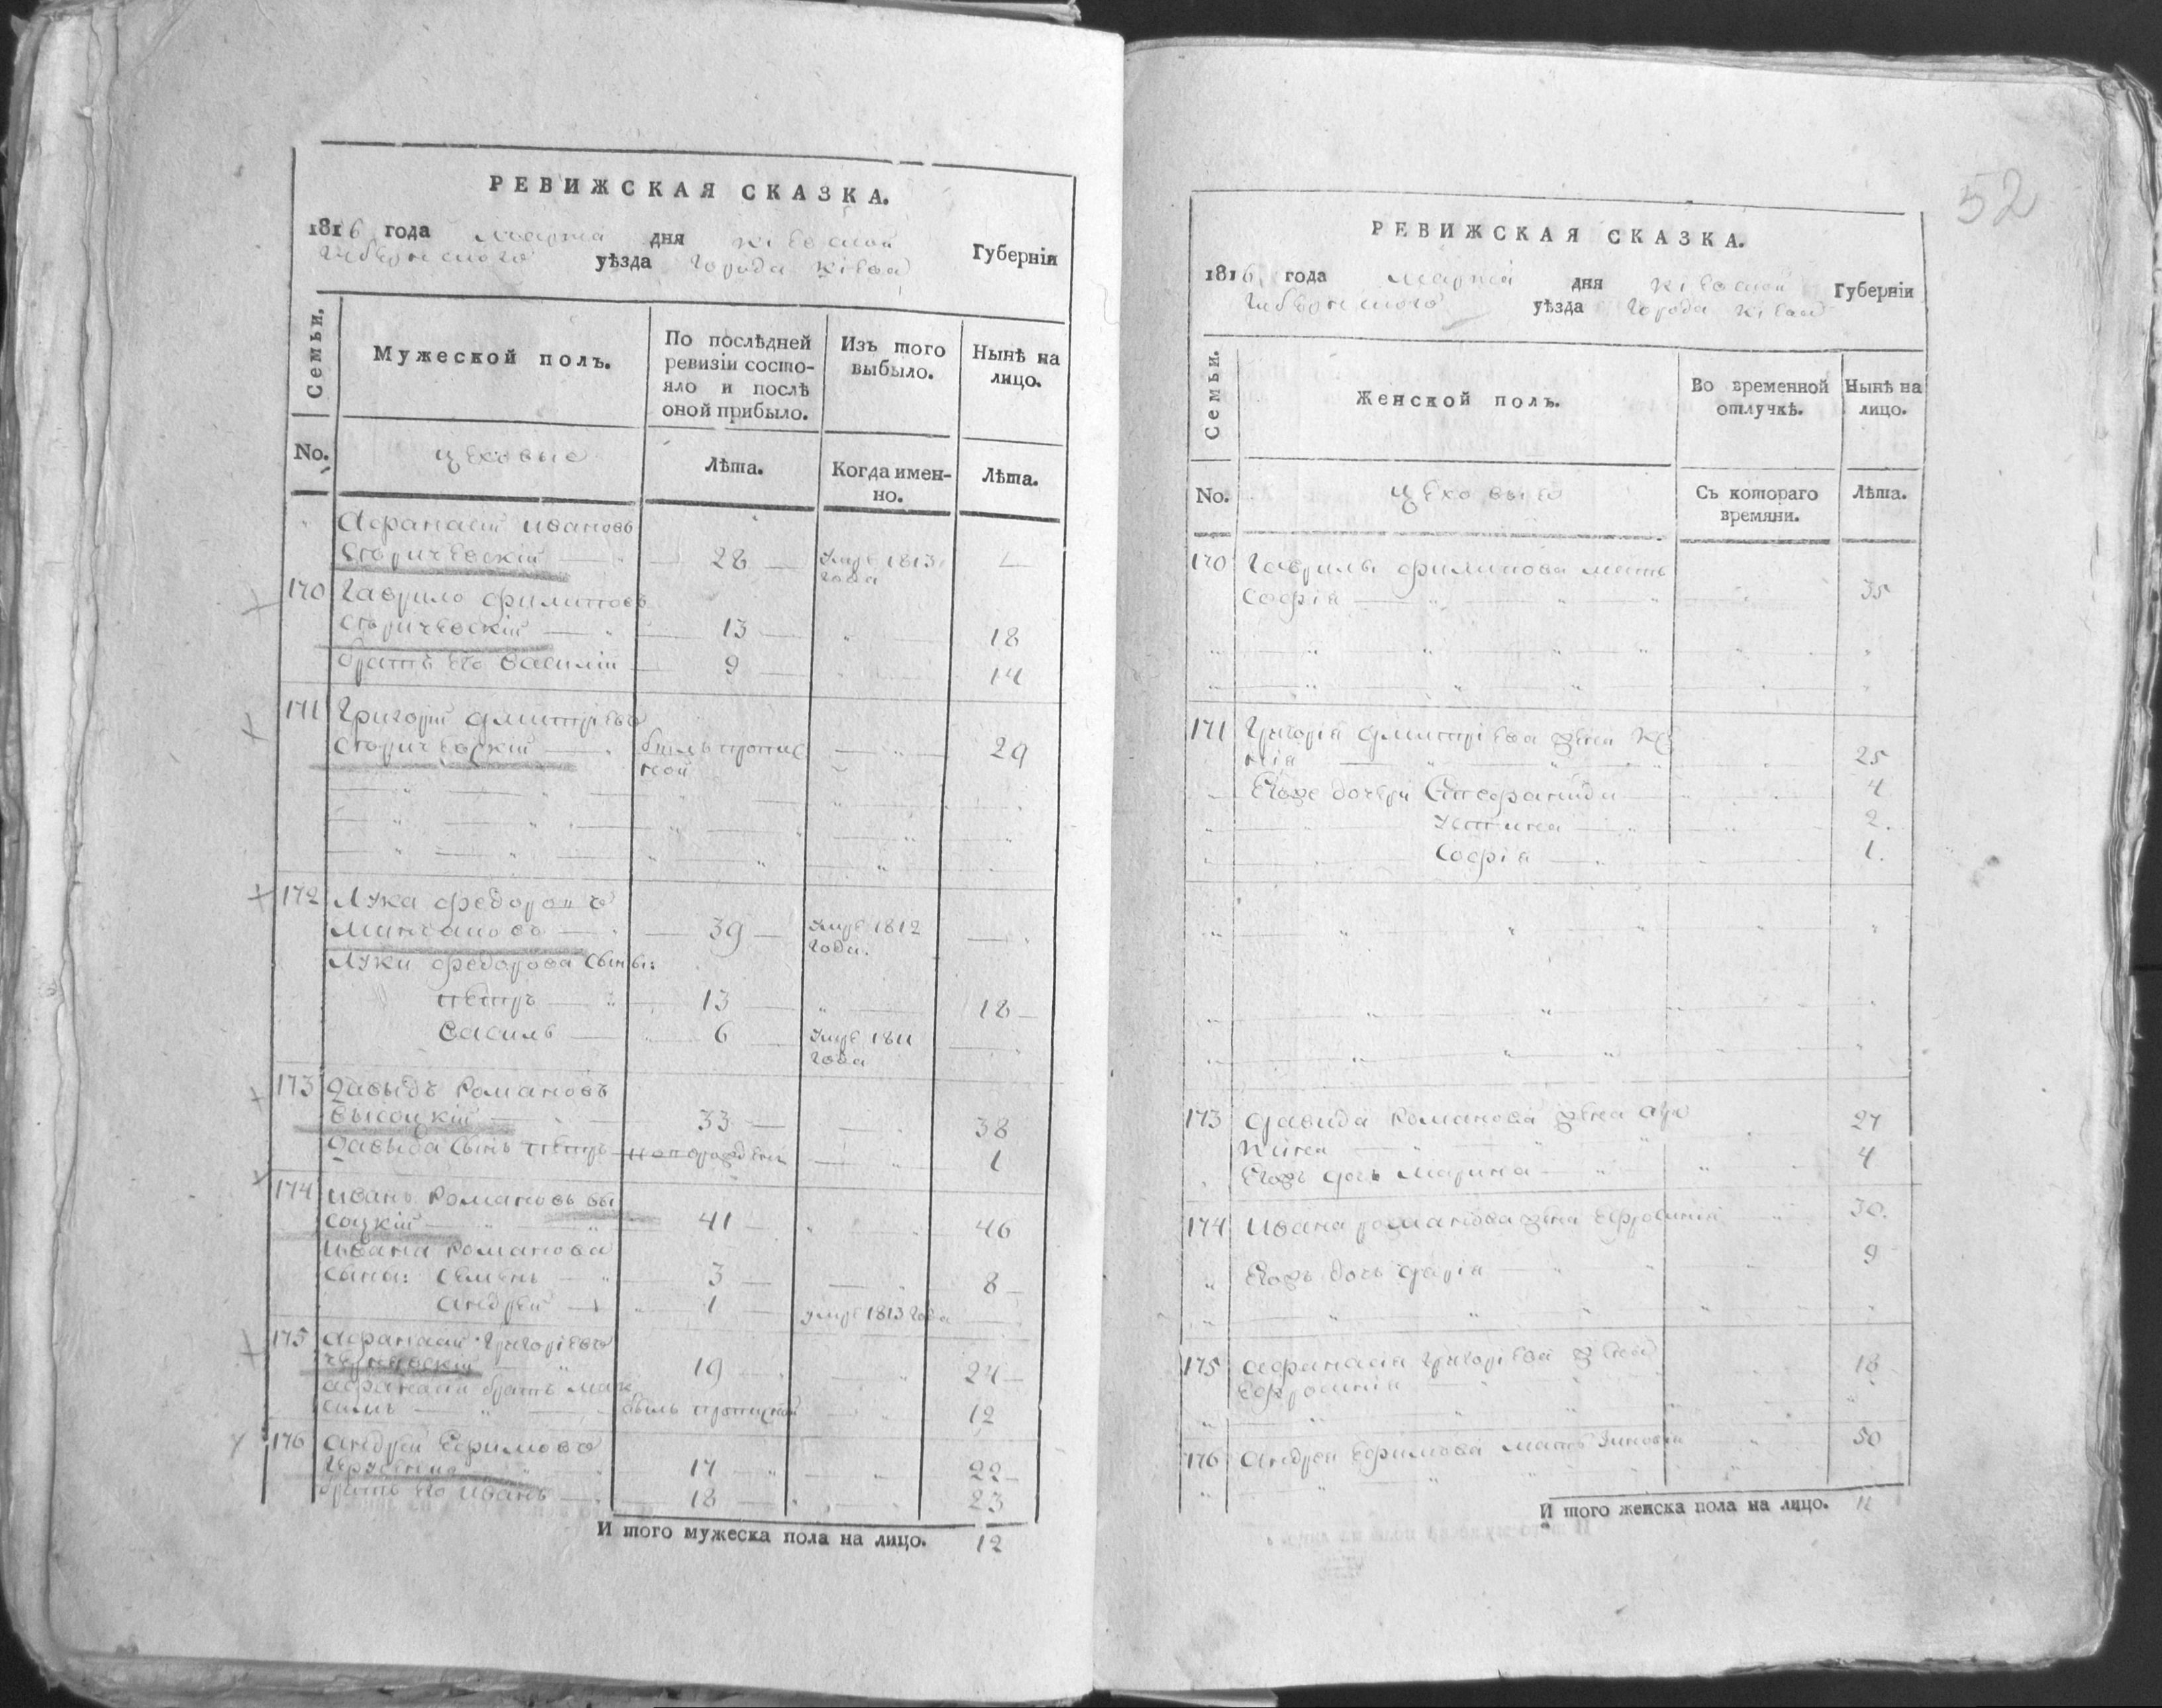 РЕВИЖСКАЯ СКАЗКА.
1816 года марта дня Кіевской Губерніи
Губернского уѣзда Города Кіева
Семьи.
Мужеской полъ.
По послѣдней ревизіи состо-
яло и послѣ
оной прибыло.
Изъ того
выбыло.
Нынѣ на
лицо.
No.
цеховые
Лѣта.
Когда имен-
но.
Лѣта.
Афанасій Ивановъ
28 Умре 1813
года
170 Гаврило Филиповъ
13 18
братъ его Василій 9 14
171 Григорій Дмитріевъ
былъ пропис
ной 29
172 Лука Федоровъ
39 Умре 1812
года.
Луки Федорова сыновья:
Петръ 13 18
Василь 6 Умре 1811
года
173 Давыдъ Романовъ
Высоцкій 33 38
Давыда сынъ Петръ новорожденъ 1
174 Иванъ Романовъ Вы
соцкій 41 46
Ивана Романова
сына: Семенъ 3 8
Андрей 1 умре 1813 года
175 Афанасій Григорьевъ
19 24
Афанасія братъ Мак
симъ былъ прописной 12
176 Андрей Ефимовъ
17 22
братъ его Иванъ 18 23
И того мужеска пола на лицо. 12
52
РЕВИЖСКАЯ СКАЗКА.
1816 года марта дня Кіевской Губерніи
Губернского уѣзда Города Кіева
Семьи.
Женской полъ.
Во временной
отлучкѣ.
Нынѣ на
лицо.
No.
цеховые
Съ котораго
времяни.
Лѣта.
170 Гаврилы Филипова мать
Софія 35
171 Григорія Дмитріева жена Ксе
нія 25
Егоже дочери Стефанида 4
Устина 2.
Софія 1.
173 Давида Романова жена
27
Егожъ дочь Марина 4
174 Ивана Романова жена Ефросинія 30.
Егожъ дочь Дарія 9
175 Афанасія Григорьева жена
Ефросинія 18
176 Андрея Ефимова мать Зиновія 50
И того женска пола на лицо. 11